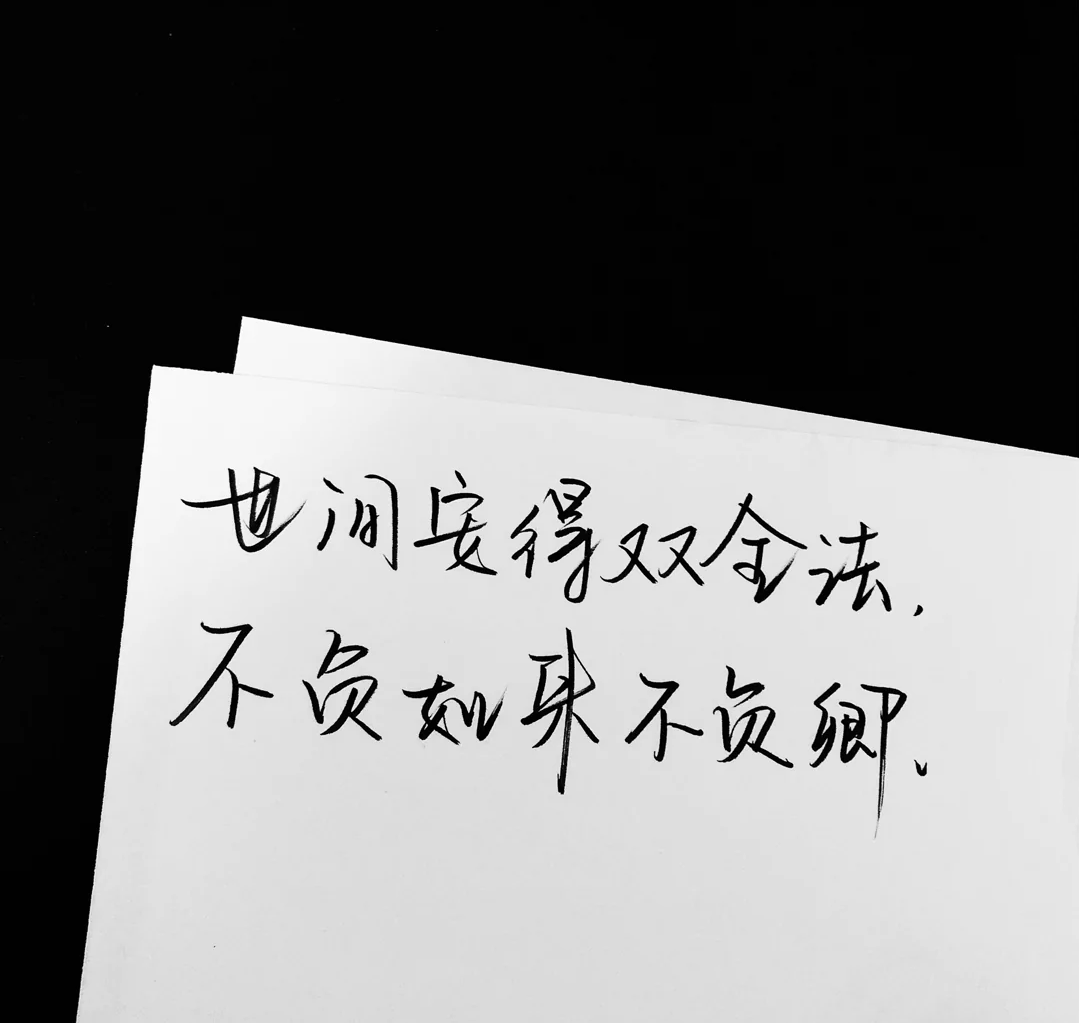 世间安得双全法，
不负如来不负卿。